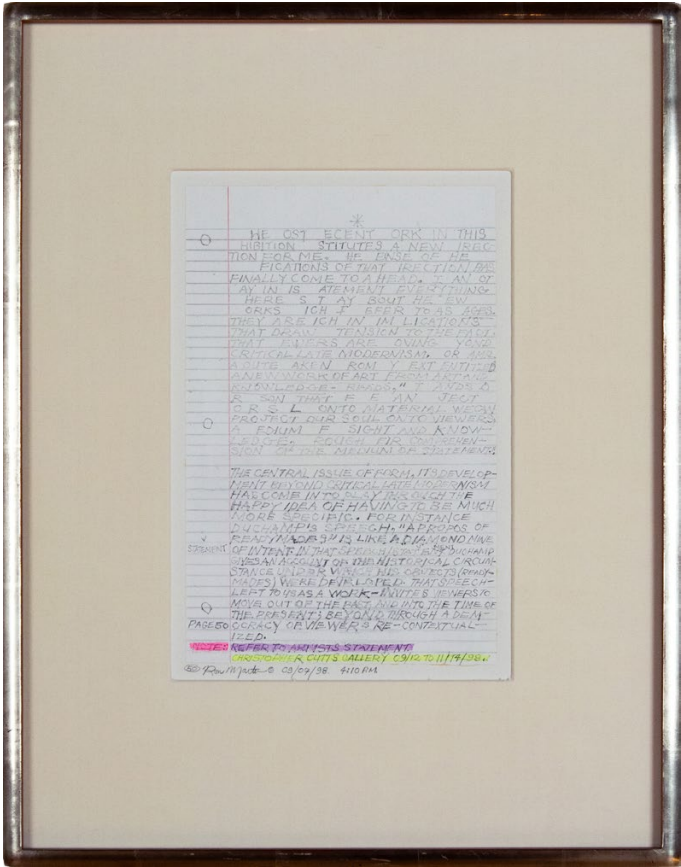 *
HE OST ECENT ORK IN THIS
HIBITION STITUTES A NEW IREC-
TION FOR ME. HE ENSE OF HE
FICATIONS OF THAT IRECTION HAS
FINALLY COME TO A HEAD. AN OF
AY IN IS ATEMENT EVERYTHING
HERE S T AY BOUT HE EW
ORKS ICH I EFER TO AS AGES.
THEY ARE ICH IN IM LICATIONS
THAT DRAW TENSION TO THE FACT
THAT EWERS ARE OVING YOND
CRITICAL LATE MODERNISM. OR
A OUTE AKEN ROM Y EXT ENTITLED
A NEW WORK OF ART
KNOWLEDGE- READS, " ANDS
R SON THAT F E AN JECT
O R S L ONTO MATERIAL WE CAN
PROJECT OUR SOUL ONTO VIEWERS
A EDIUM F SIGHT AND KNOW-
LEDGE. ROUGH COMPREHEN-
SION OF THE MEDIUM OF STATEMENTS
THE CENTRAL ISSUE OF FORM, ITS DEVELOP-
MENT BEYOND CRITICAL LATE MODERNISM
HAS COME INTO PLAY THROUGH THE
HAPPY IDEA OF HAVING TO BE MUCH
MORE SPECIFIC. FOR INSTANCE
DUCHAMP'S SPEECH, "APROPOS OF
READYMADES" IS LIKE A DIAMOND MINE
STATEMENT OF INTENT. IN THAT SPEECH/STATE DUCHAMP
GIVES AN ACCOUNT OF THE HISTORICAL CIRCUM-
STANCE UNDER WHICH HIS OBJECTS (READY-
MADES) WERE DEVELOPED. THAT SPEECH-
LEFT TO US AS A WORK-INVITES VIEWERS TO
MOVE OUT OF THE PAST AND INTO THE TIME OF
THE PRESENT & BEYOND THROUGH A DEM-
PAGE 50 OCRACY OF VIEWERS RE-CONTEXTUAL-
IZED.
NOTE: REFER TO ARTISTS STATEMENT
CHRISTOPHER CUTTS GALLERY 09/12 TO 11/14/98.
09/07/98. 4:10 PM